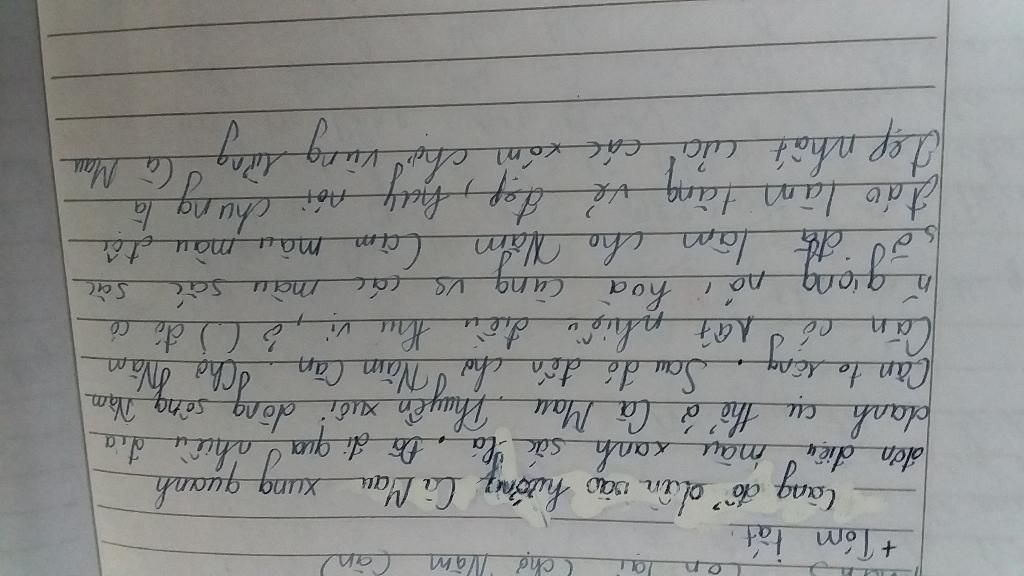 còn lại (chợ Năm Căn)
+ Tóm tắt
Càng đổ dần vào hướng Cà Mau xung quanh
đơn điệu màu xanh sắc lá. Đã đi qua nhiều địa
danh cụ thể ở Cà Mau. Thuyền xuôi dòng sông Năm
Căn to rộng. Sau đó đến chợ Năm Căn. Chợ Năm
Căn có rất nhiều điều thu vị, ở () đó có
giọng nói hoà cùng vs các màu sắc
đã làm cho Năm Căn màu màu đội
đáo làm tăng vẻ đẹp, hay nói chung là
đẹp nhất của các xóm chợ vùng rừng Cà Mau